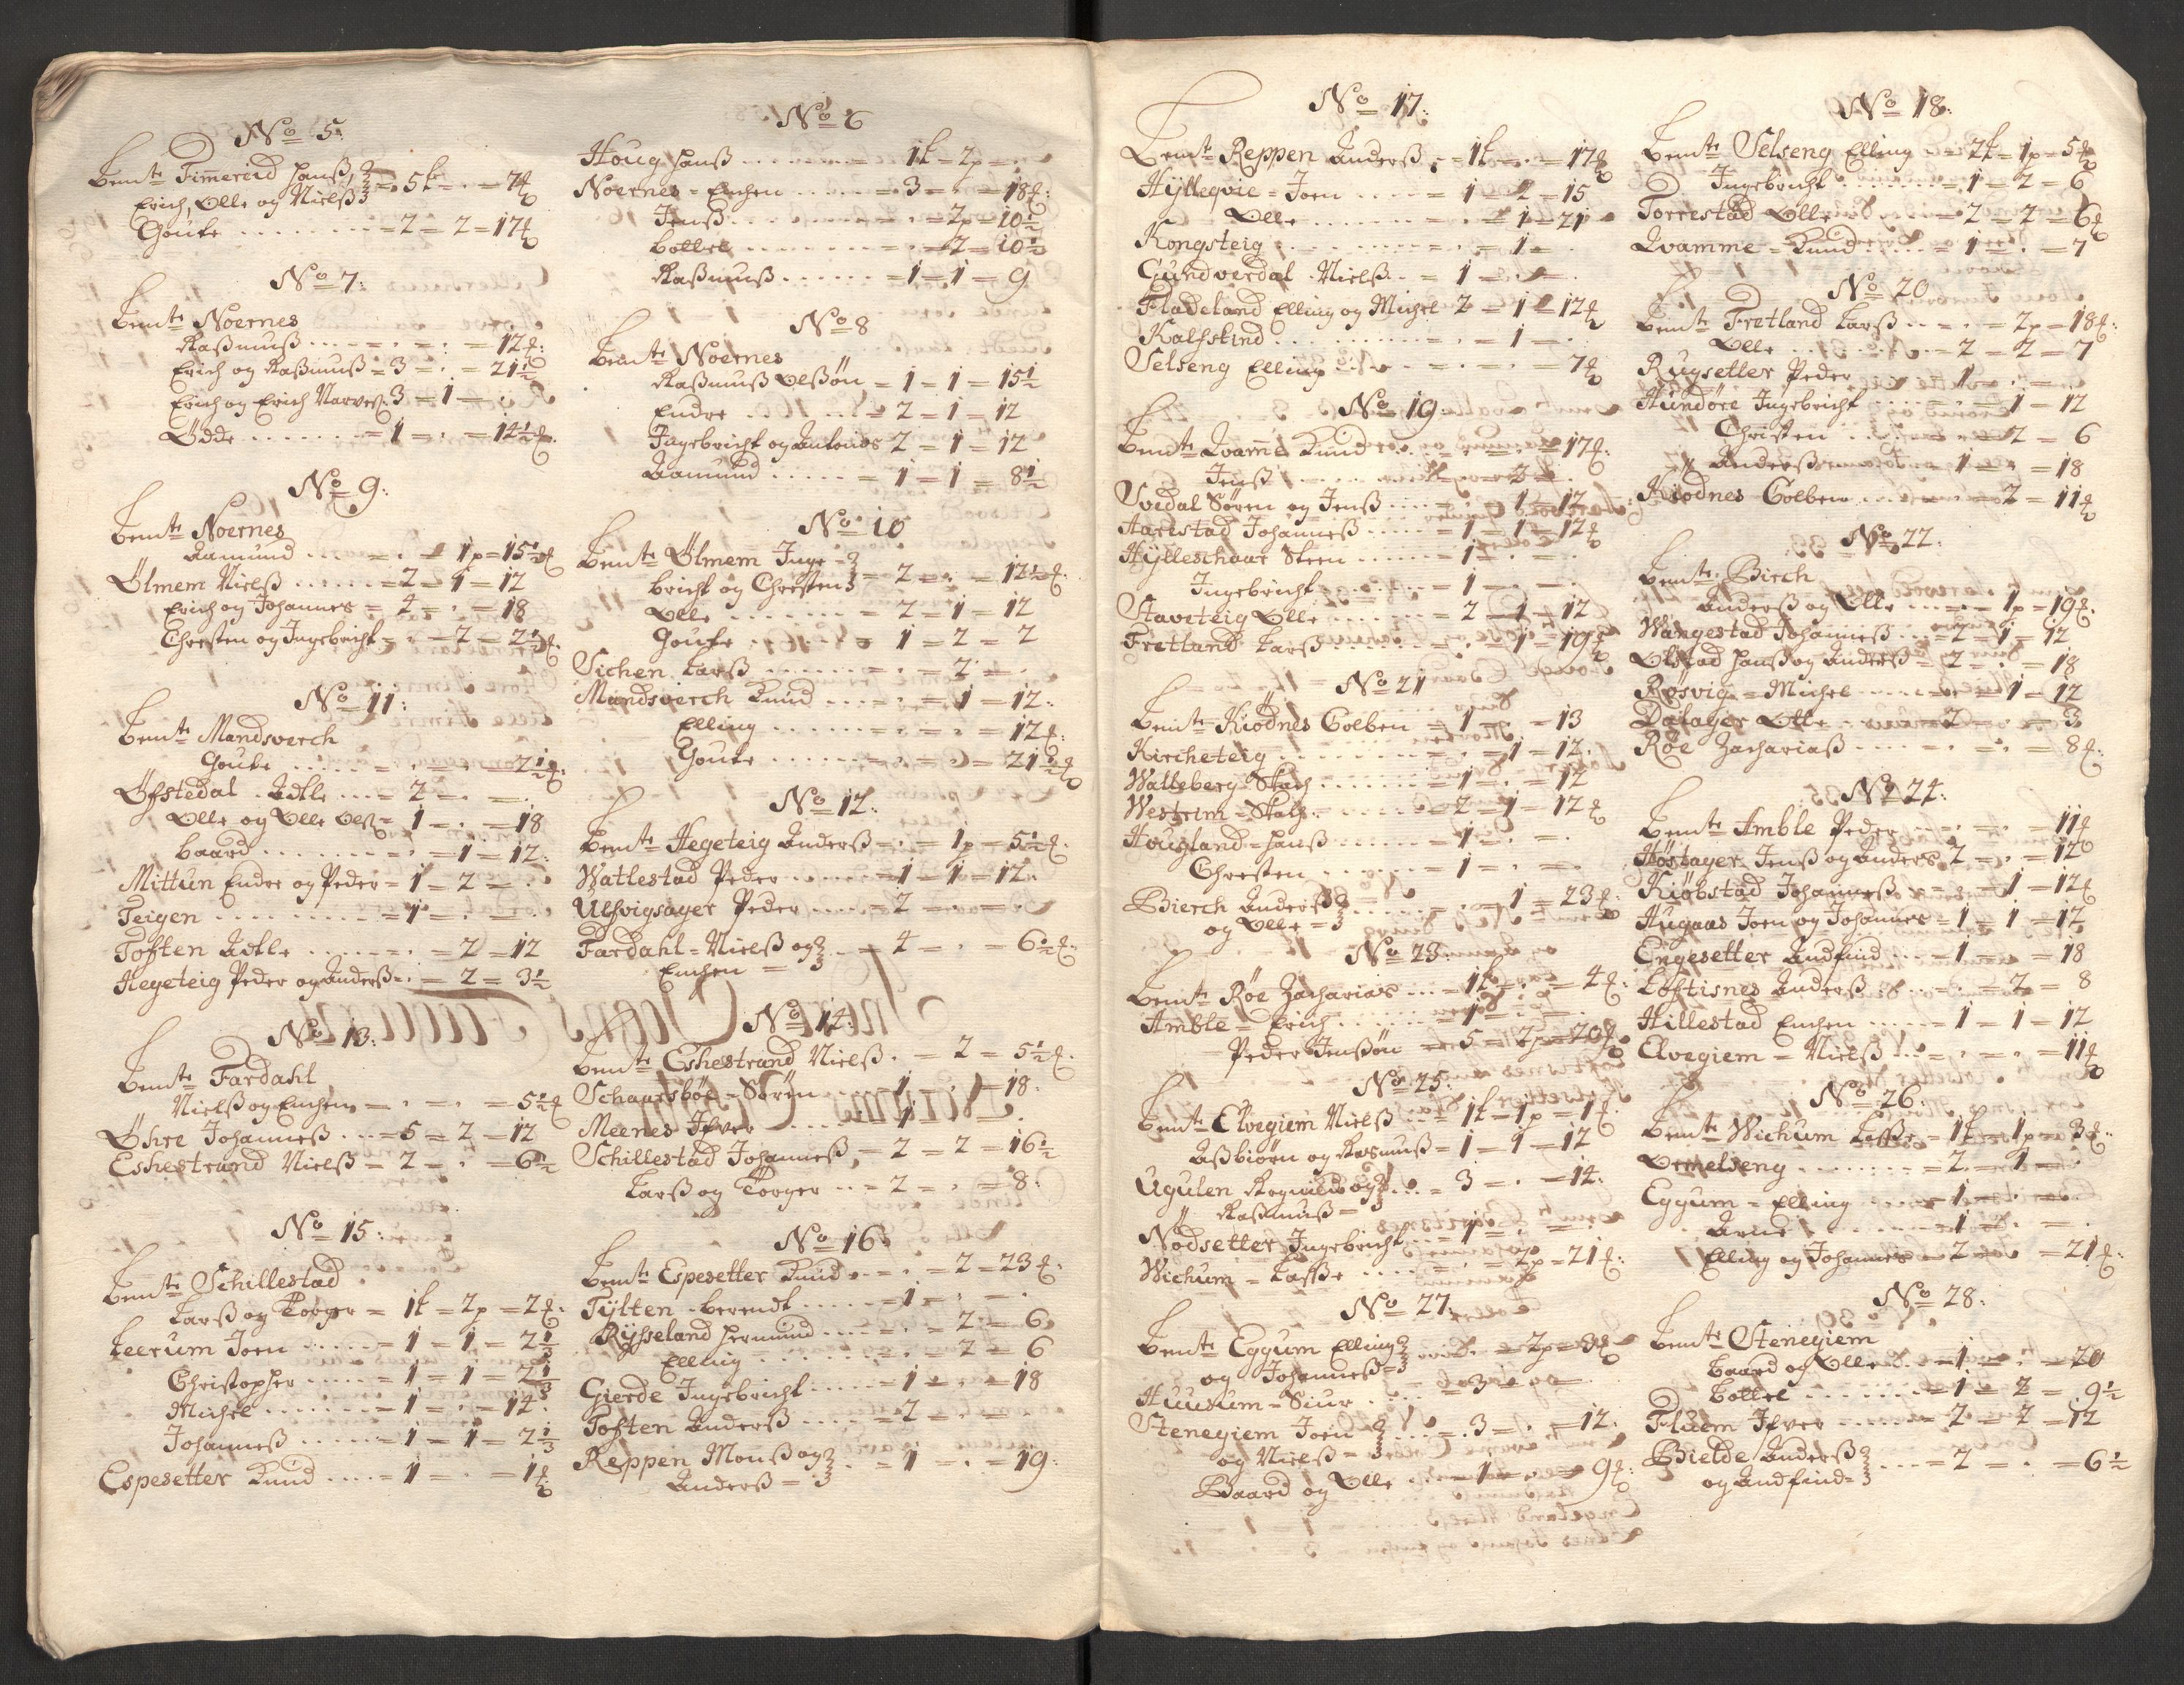 No 5:
Bemte Timereid Hanß,
Erich, Olle og Nielß = 5 L = . = 7 f
Goute ........ = 2 = 2 = 17 f
No 7:
Bemte Noernes
Raßmuß .... = . = . = 12 f:
Erich og Raßmuß = 3 = . = 21½
Erich og Erich Narves. 3 = 1 = .
Ødde ....... = 1 = . = 14½ f.
No 9:
Bemte Noernes
Aamund .... = . = 1 p = 15½ f
Ølmem Nielß ...... = 2 = 1 = 12
Erich og Johannes = 4 = . = 18
Chresten og Ingebricht = . = 2 = 2½ f.
No 11:
Bemte Mandsverch
Goute ...... = . = . = 2½ f.
Øfstedal Adtle .... = 2 = . = .
Olle og Olle Olß = 1 = . = 18
Baard ........ = . = 1 = 12.
Mittun Endre og Peder = 1 = 2 = .
Teigen ......... = 1 = . = .
Toften Adtle ...... = . = 2 = 12
Hegeteig Peder og Anderß = . = 2 = 3½
No 13:
Bemte Fardahl
Nielß og Enchen = . = . = 5½ f
Øhre Johanneß ... = 5 = 2 = 12
Eshestrand Nielß = 2 = . = 6½
No 15:
Bemte Schillestad
Larß og Torger = 1 L = 2 p = 2 f:
Leerum Joen ..... = 1 = 1 = 2⅓
Christopher ..... = 1 = 1 = 2⅓
Michel ....... = 1 = . = 14.
Johanneß ..... = 1 = 1 = 2⅓
Espesetter Knud .... = 1 = . = 1 f:
No 6
Houg Hanß ........ = 1 L = 2 p = .
Noernes = Enchen ..... = 3 = . = 18 f:
Jenß .......... = . = 2 p = 10½
Bottel ......... = . = 2 = 10½
Raßmuß ...... = 1 = 1 = 9
No 8
Bemte Noernes
Raßmuß Olßøn = 1 = 1 = 15½
Endre ....... = 2 = 1 = 12
Ingebricht og Antonios 2 = 1 = 12
Aamund ..... = 1 = 1 = 8½
No 10
Bemte Ølmem Inge-
bricht og Chresten = 2 = . = 12½ f.
Olle ....... = 2 = 1 = 12
Goute ....... = 1 = 2 = 2
Sichen Larß ....... = . = 2 = .
Mandsverch Knud .... = . = 1 = 12.
Elling ....... = . = . = 12 f:
Goute ....... = . = . = 21½ f
No 12:
Bemte Hegeteig Anderß = . = 1 p = 5½ f.
Watlestad Peder ..... = 1 = 1 = 12.
Ulfvigsager Peder .... = 2 = . = .
Fardahl = Nielß og
Enchen = .. = 4 = . = 6½ f.
No 14:
Bemte Eshestrand Nielß . = 2 = 5½ f.
Schaarsbøe = Sørren .. 1 = . = 18.
Meenes Ifver ..... = 1 = . = .
Schillestad Johanneß = 2 = 2 = 16½
Larß og Torger .. = 2 = . = 8.
No 16
Bemte Espesetter Knud .. = . = 2 = 23 f.
Tÿlten Berendt ..... = 1 = . = .
Rÿsseland Hermund .... = . = 2 = 6
Elling ....... = . = 2 = 6
Gierde Ingebricht ..... = 1 = . = 18
Toften Anderß ..... = 2 = . = .
Reppen Monß og
Anderß = .. = 1 = . = 19.
No 17:
Bemte Reppen Anderß . = 1 L = . = 17 f
Hÿllegvie = Joen ..... = 1 = 2 = 15
Olle ........ = . = 1 = 21
Kongsteig ......... = . = 1 = .
Gundverdal Nielß .. = 1 = . = .
Fladeland Elling og Michel 2 = 1 = 12 f
Kalfstind ........ = . = 1 = .
Selseng Elling .. = . = . = 7 f
No 19:
Bemte Qvamē Knud ... = . = 17 f.
Jenß ....... = . = 2 = .
Øvedal Sørren og Jenß .... = . = 1 = 12
Aarestad Johanneß ..... = 1 = 1 = 12 f
Hÿlleschaar Steen ..... = 1 = . = .
Ingebricht ...... = 1 = . = .
Stavteig Olle ...... = 2 = 1 = 12
Fretland Larß ...... = . = 1 = 19 f
No 21
Bemte Kiødnes Colben = 1 = . = 13
Kircheteig ........ = . = 1 = 12.
Walleberg Stach ...... = 1 = . = 12
Westrim = Stach ...... = 2 = 1 = 12 f
Hougland = Hanß ...... = 1 = . = .
Chresten ...... = 1 = . = .
Bierch Anderß
og Olle = .... = . = 1 = 23 f.
No 23:
Bemte Røe Zacharias ... = 1 L = . = 4 f.
Amble = Erich ...... = 1 = . = .
Peder Jenßøn = 5 = 2 p = 20 f.
No 25:
Bemte Elvegiem Nielß ... = 1 L = 1 p = 1 f.
Aßbiørn og Rasmuß = 1 = 1 = 12
Ugulen Rognild og
Raßmuß = ... = 3 = . = 14.
Nødsetter Ingebricht ... = 1 = . = .
Wichum = Lasse ..... = . = 2 p = 21 f.
No 27:
Bemte Eggum Elling
og Johanneß = .. = . = 2 p = 3 f
Huusum = Siur ..... = 3 = . = .
Stenegiem Joen
og Nielß = ... = 3 = . = 12.
Baard og Olle ... = 1 = . = 9 f.
No 18:
Bemte Selseng Elling = 2 L = 1 p = 5 f
Ingebricht ....... = 1 = 2 = 6
Torrestad Olle .... = 2 = 2 = 6 f
Qvamme = Knud ..... = 1 = . = 7
No 20
Bemte Fretland Larß ... = . = 2 p = 18 f.
Olle ........ = 2 = 2 = 7
Rugsetter Peder .... 1 = . = .
Hundøre Ingebricht ..... = . = 1 = 12
Christen ...... = . = 2 = 6
Anderß ...... = 1 = . = 18
Kiødnes Colben ...... = . = 2 = 11 f
No 22:
Bemte Birch
Anderß og Olle .... = . = 1 p = 19 f.
Wangestad Johanneß ... = 2 = 1 = 12
Olstad Hanß og Anderß = 2 = . = 18
Røsvig = Michel ...... = . = 1 = 12
Dalager Olle ...... = 2 = . = 3
Røe Zachariaß ..... = . = . = 8 f.
No 24:
Bemte Amble Peder .... = . = . = 11 f
Høstager Jenß og Anders 2 = . = 12
Kiøbstad Johanneß .... = . = 1 = 12 f
Hugaas Joen og Johannes = 1 = 1 = 12
Engesetter Andfind ... = 1 = . = 18
Loftisnes Anderß ..... = . = 2 = 8
Hillestad Enchen ...... = 1 = 1 = 12
Elvegiem = Nielß .... = . = . = 11 f
No 26:
Bemte Wichum Lasse = 1 L = 1 p = 3 f.
Ormelseng ....... = 2 = 1 = .
Eggum = Elling .... = 1 = . = .
Arne ....... = 1 = . = .
Elling og Johannes = 2 = . = 21 f.
No 28:
Bemte Stenegiem
Baard og Olle .... = 1 = . = 20
Bottel ....... = 1 = 2 = 9½
Fluem Ifver ...... = 2 = 2 = 12
Bielde Anderß
og Andfind = .... = 2 = . = 6½